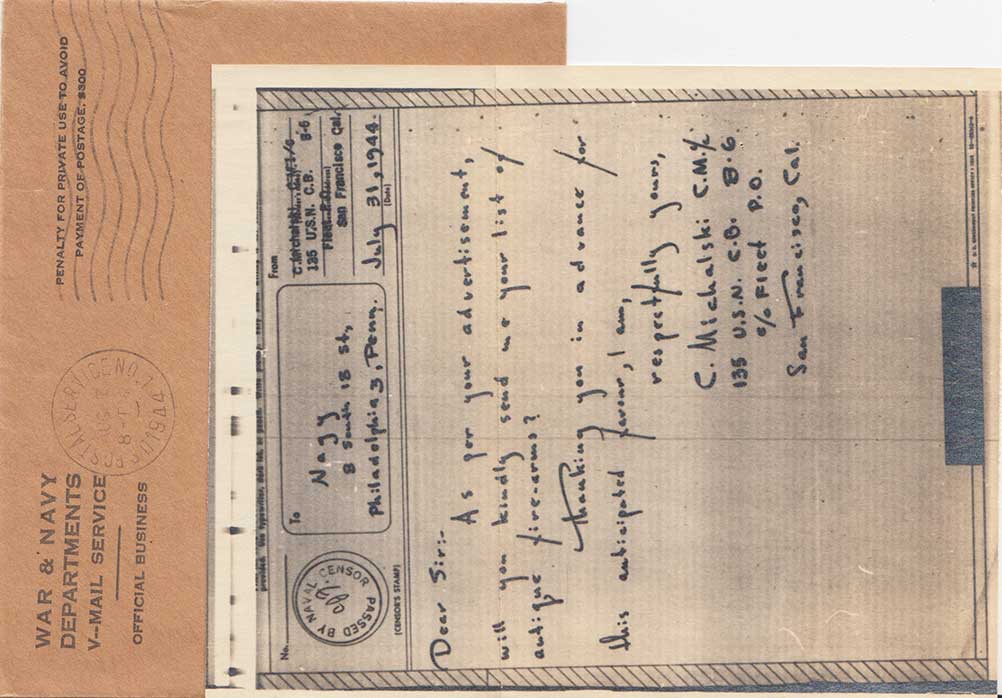 WAR & NAVY
DEPARTMENTS
V-MAIL SERVICE
OFFICIAL BUSINESS
PENALTY FOR PRIVATE USE TO AVOID
PAYMENT OF POSTAGE, $300
1944
No.
PASSED BY NAVAL CENSOR
(CENSOR'S STAMP)
To
Nagy
8 South 18 St,
Philadelphia 3, Penn.
From
C. Michalski C.M.1/c
135 U.S.N. C.B. B-6
Fleet P.O.
San Francisco Cal.
July 31, 1944
(Date)
Dear Sir:-
As per your advertisement,
will you kindly send me your list of
antique fire-arms?
Thanking you in advance for
this anticipated favour, I am,
respectfully yours,
C. Michalski C.M.1/c
135 U.S.N. C.B. B-6
c/o Fleet P.O.
San Francisco, Cal.